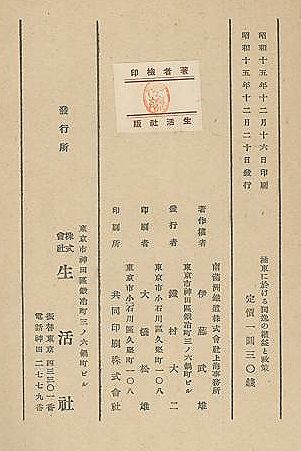 昭和十五年十二月十六日印刷
昭和十五年十二月二十日發行
東に於ける列國の權益と政策
定價一圓三〇錢
著者檢印
生活社版
南滿洲鐵道株式會社上海事務所
著作權者 伊藤武雄
東京市神田區鍛冶町三ノ六鍋町ビル
發行者 鐵村大二
東京市小石川區久堅町一〇八
印刷者 大橋松雄
東京市小石川區久堅町一〇八
印刷所 共同印刷株式會社
東京市神田區鍛冶町三ノ六鍋町ビル
發行所 株式會社 生活社
振替東京四三三〇一番
電話神田二七七九番